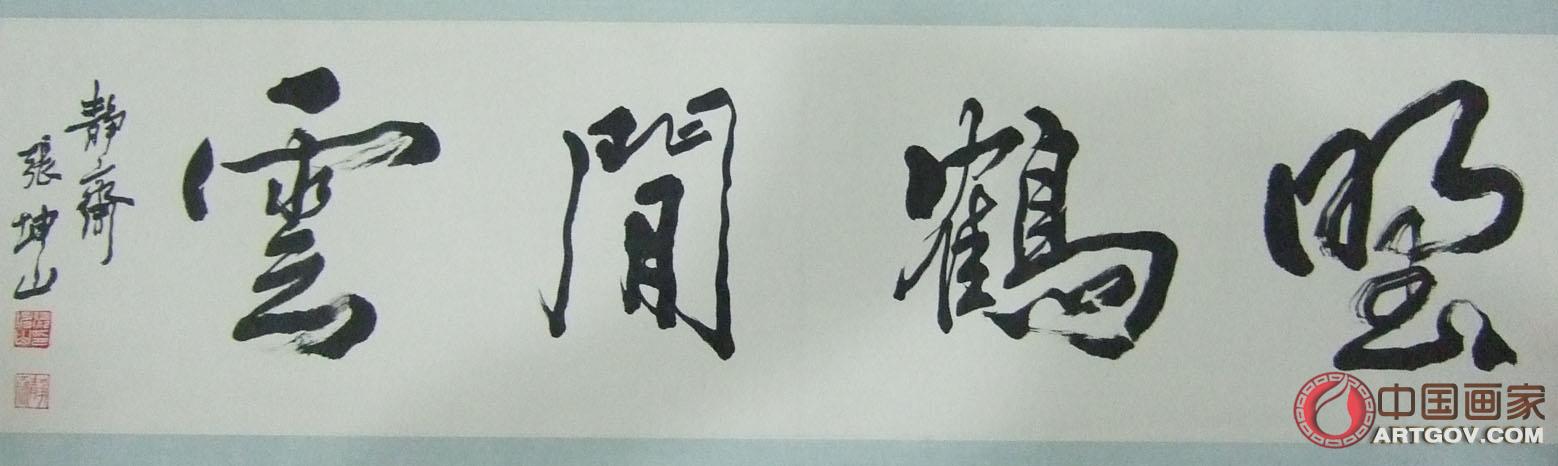 野鶴閒雲
靜齋
張坤山
中国画家
ARTGOV.COM